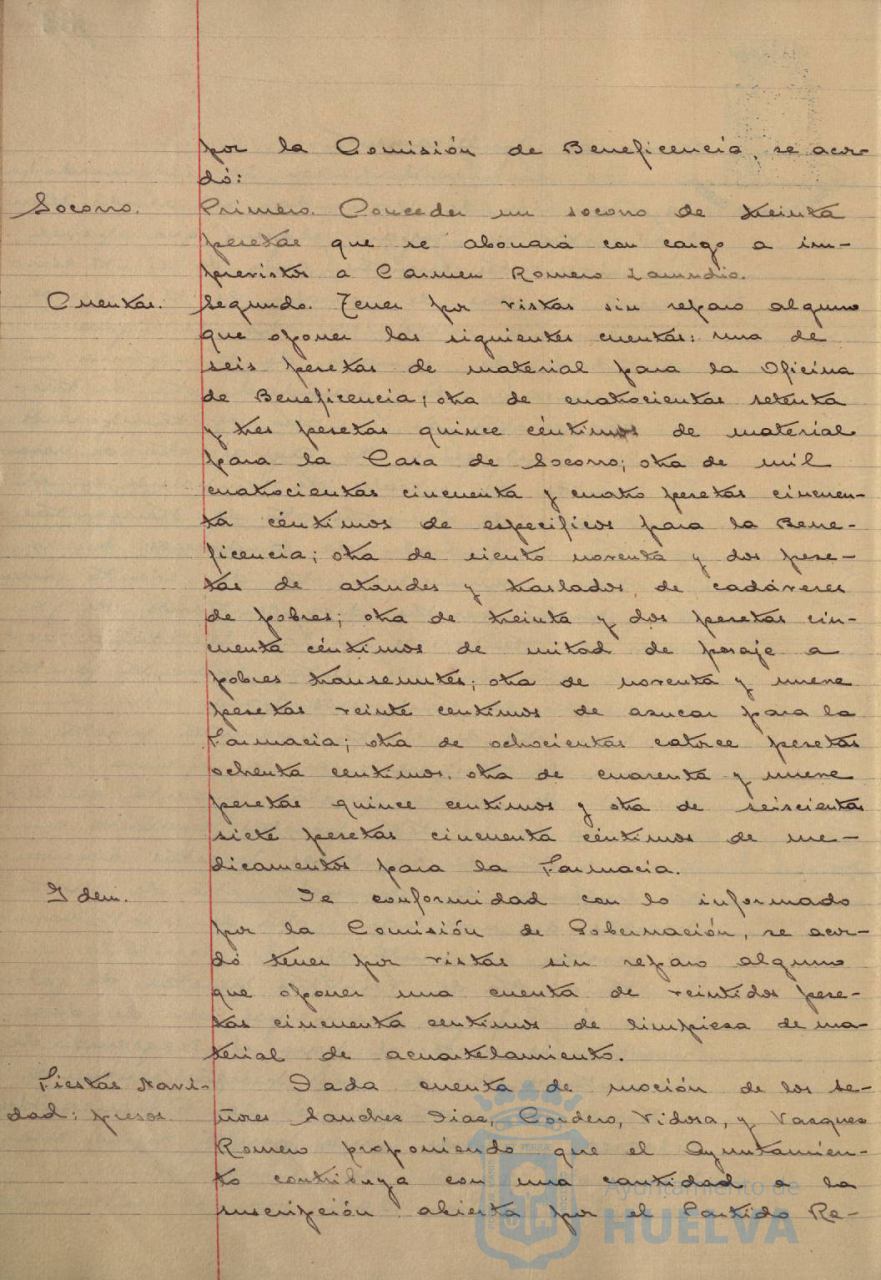 por la Comisión de Beneficencia, se acor-
dó:
Socorro. Primero. Conceder un socorro de treinta
pesetas que se abonará con cargo a im-
previstos a Carmen Romero
Cuentas. Segundo. Tener por vistas sin reparo alguno
que oponer las siguientes cuentas: una de
seis pesetas de material para la Oficina
de Beneficencia; otra de cuatrocientas setenta
y tres pesetas quince céntimos de material
para la Casa de Socorro; otra de mil
cuatrocientas cincuenta y cuatro pesetas cincuen-
ta céntimos de especificos para la Bene-
ficencia; otra de ciento noventa y dos pese-
tas de ataudes y traslados de cadáveres
de pobres; otra de treinta y dos pesetas cin-
cuenta céntimos de mitad de pasaje a
pobres transeuntes; otra de noventa y nueve
pesetas veinte centimos de azucar para la
Farmacia; otra de ochocientas catorce pesetas
ochenta centimos. otra de cuarenta y nueve
pesetas quince centimos y otra de seiscientas
siete pesetas cincuenta céntimos de me-
dicamentos para la Farmacia.
Idem. De conformidad con lo informado
por la Comisión de Gobernación, se acor-
dó tener por vistas sin reparo alguno
que oponer una cuenta de veintidos pese-
tas cincuenta centimos de limpiesa de ma-
terial de acuartelamiento.
Fiestas Navi-
dad: presos. Dada cuenta de moción de los se-
ñores Sanches Dias, Cordero, Vidosa, y Vasques
Romero proponiendo que el Ayuntamien-
to contribuya con una cantidad a la
suscripción abierta por el Partido Re-
Ayuntamiento de
HUELVA